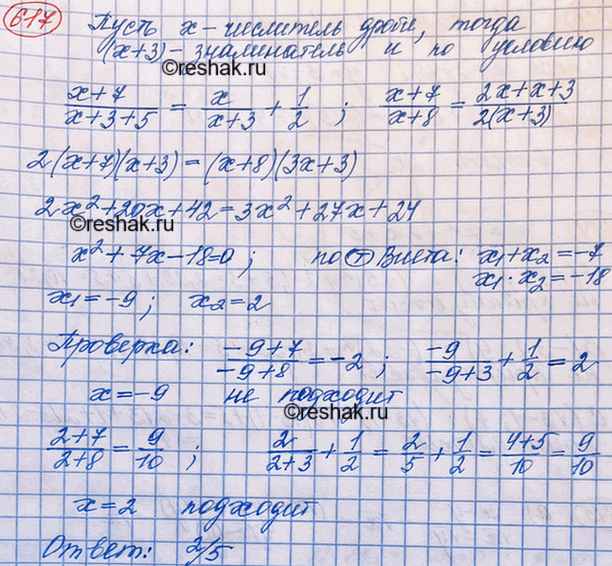 617
Пусть x - числитель дроби, тогда
(x+3) - знаминатель и по условию
©reshak.ru
(x+7)/(x+3+5) = x/(x+3) + 1/2 ; (x+7)/(x+8) = (2x+x+3)/(2(x+3))
2(x+7)(x+3) = (x+8)(3x+3)
2x²+20x+42 = 3x²+27x+24
©reshak.ru
x²+7x-18=0 ; по Т Виета: x₁+x₂=-7
x₁·x₂=-18
x₁=-9; x₂=2
Проверка: (-9+7)/(-9+8) = -2 ; -9/(-9+3) + 1/2 = 2
x=-9 не подходит
©reshak.ru
(2+7)/(2+8) = 9/10 ; 2/(2+3) + 1/2 = 2/5 + 1/2 = (4+5)/10 = 9/10
x=2 подходит
Ответ: 2/5